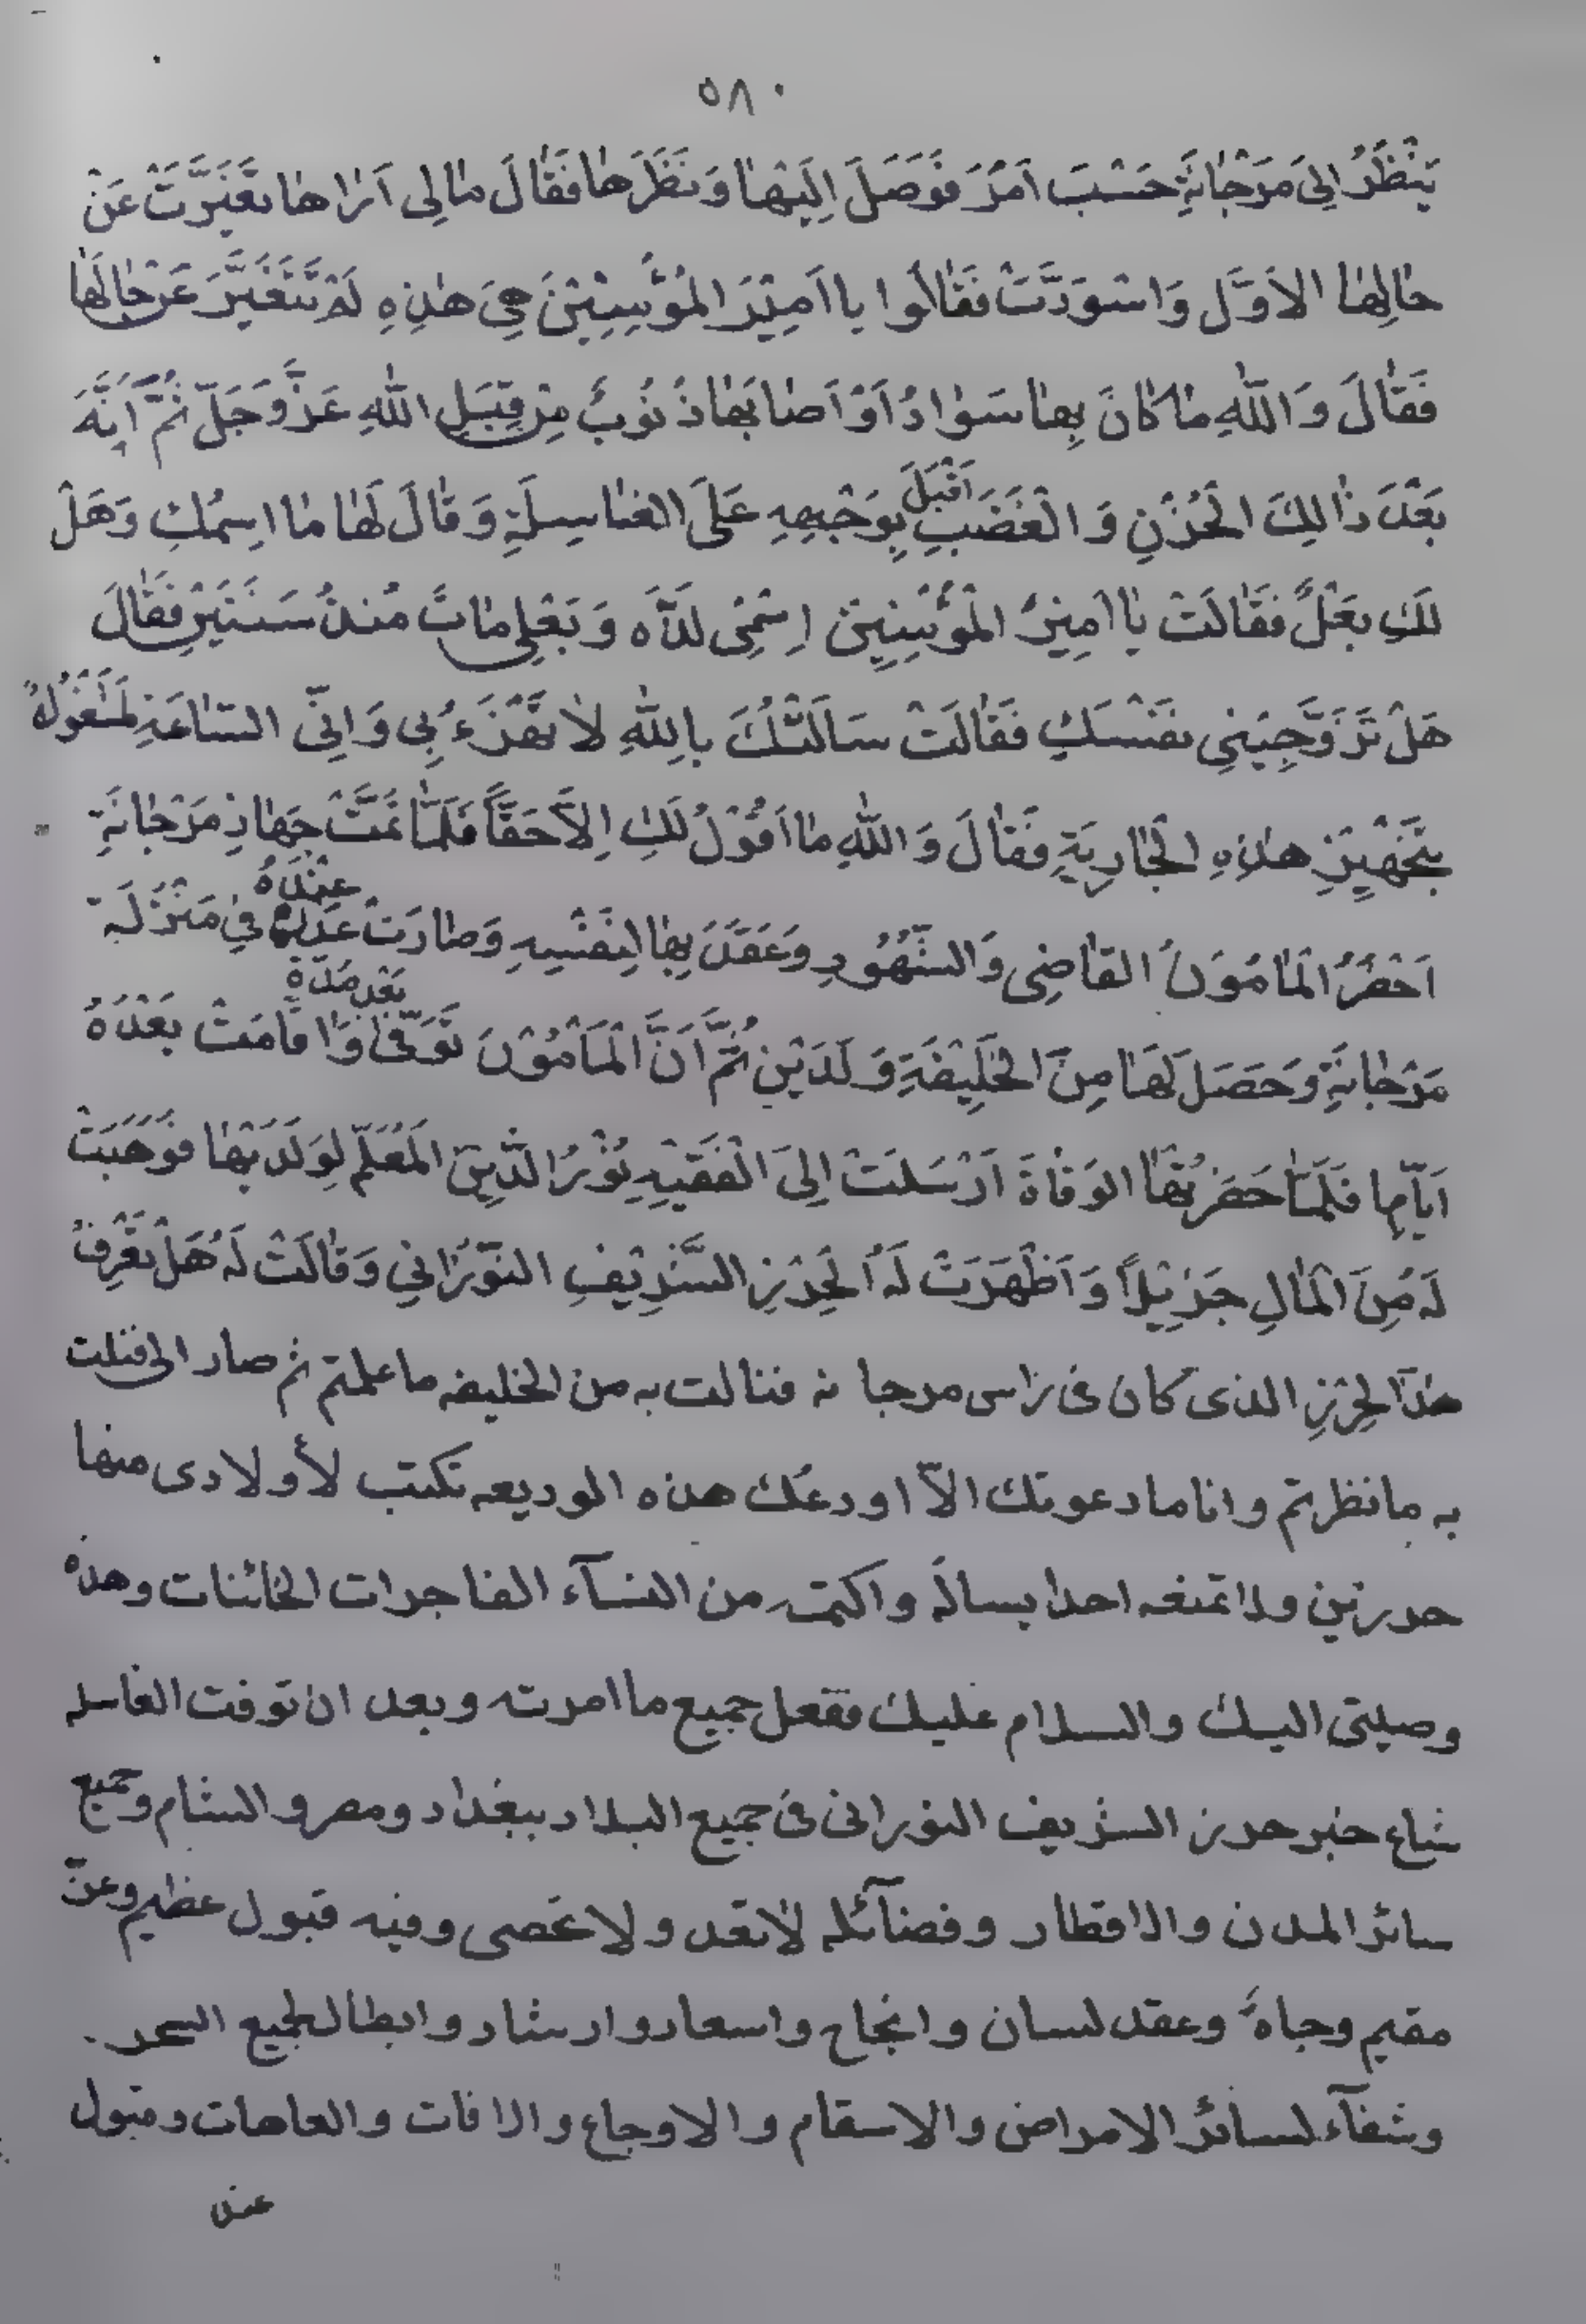 ٥٨٠
يَنْظُرُ اِلىَ مَرْجَانَةِ حَسْبَ اَمْرَ فَوَصَلَ اِلَيْهَا وَنَظَرَهَا فَقَالَ مَا لِى اَرَاهَا تَغَيَّرَتْ عَنْ
حَالِهَا الاَوَّل وَاسْوَدَّتْ فَقَالُوا يا اَمِيْرَ المُؤْمِنِيْنَ هِىَ هٰذِهِ لَمْ تَتَغَيَّرَ عَنْ حَالِهَا
فَقَالَ وَاللّٰهِ مَا كَانَ بِهَا سَوَادٌ اَوْ اَصَابَهَا ذُنُوبٌ مِنْ قِبَلِ اللّٰهِ عَزَّ وَجَلَّ ثُمَّ اِنَّهَ
بَعْدَ ذَالِكَ الْحُزْنِ وَالْغَضَبِ اَقْبَلَ بِوَجْهِهِ عَلىَ الغَاسِلَةِ وَقَالَ لَهَا مَا اسِمُكِ وَهَلْ
لَكِ بَعْلٌ فَقَالَتْ يَا اَمِيْرُ الْمُؤْمِنِيْنَ اِسْمِى لَدَّاه وَبَعْلِى مَاتَ مُنذُ سَنَتَيْنِ فَقَالَ
هَلْ تَزَوَّجِيْنِى نَفْسَكِ فَقَالَتْ سَاَلْتُكَ بِاللّٰهِ لاَ تَهْزَءُ بِى وَاِنِّى السَّاعَةِ لَمَشْغُولَةٌ
بِتَجْهِيْزِ هٰذِهِ الْجَارِيَةِ فَقَالَ وَاللّٰهِ مَا اَقُوْلُ لَكِ اِلاَّ حَقّاً فَلَمَّا تَمَّتْ جَهَازِ مَرْجَانَةِ
اَحْضَرُ الْمَامُوْنَ القَاضِى وَالشُّهُوْدِ وَعَقَدَ بِهَا لِنَفْسِهِ وَصَارَتْ عِنْدَهُ فِى مَنْزِلَة
مَرْجَانَةِ وَحَصَلَ لَهَا مِنَ الْخَلِيْفَةِ وَلَدَيْنِ ثُمَّ اَنَّ الْمَاْمُوْنَ تَوَفّٰى بَعْدِ مُدَّةِ وَاَقَامَتْ بَعْدَهُ
اَيَّامِا فَلَمَّا حَضَرَتْهَا الوَفَاةَ اَرْسَلَتْ اِلىَ الْفَقِيْهِ نُوْرُ الدِّيْنِ الْمَعُلّمِ لِوَلَدَيْهَا فَوَهَبَتْ
لَهُ مِنَ الْمَالِ جَزِيْلاً وَاَظْهَرَتْ لَهُ الْحِرْزِ الشَّرِيْفِ النّوُرَانِي وَقَالَتْ لَهُ هَلْ تَعْرِفُ
هٰذَا الْحِرْزِ الذى كان فى راس مرجا نه فنالت به من الخليفه ما علمتم ثم صار الى فنلت
به ما نظرتم وانا ما دعوتك الاّ اودعك هذه الوديعه تكتب لأولادى منها
حرزين ولا تمنعه احدا يساله واكتمه من النسآء الفاجرات الخائنات وهذه
وصيتى اليك والسلام عليك ففعل جميع ما امرته وبعد ان توفت الغاسله
شاع خبر حرز الشريف النورانى فى جميع البلاد ببغداد ومصر والشام وجميع
سائر المدن والاقطار وفضآئله لاتعد ولا تحصى وفيه قبول عظيم وعزّ
مقيم وجاهٌ وعقد لسان وانجاح واسعاد وارشاد وابطال لجميع السحر
وشفآء لسائر الامراض والاسقام والاوجاع والافات والعاهات وقبول
عند